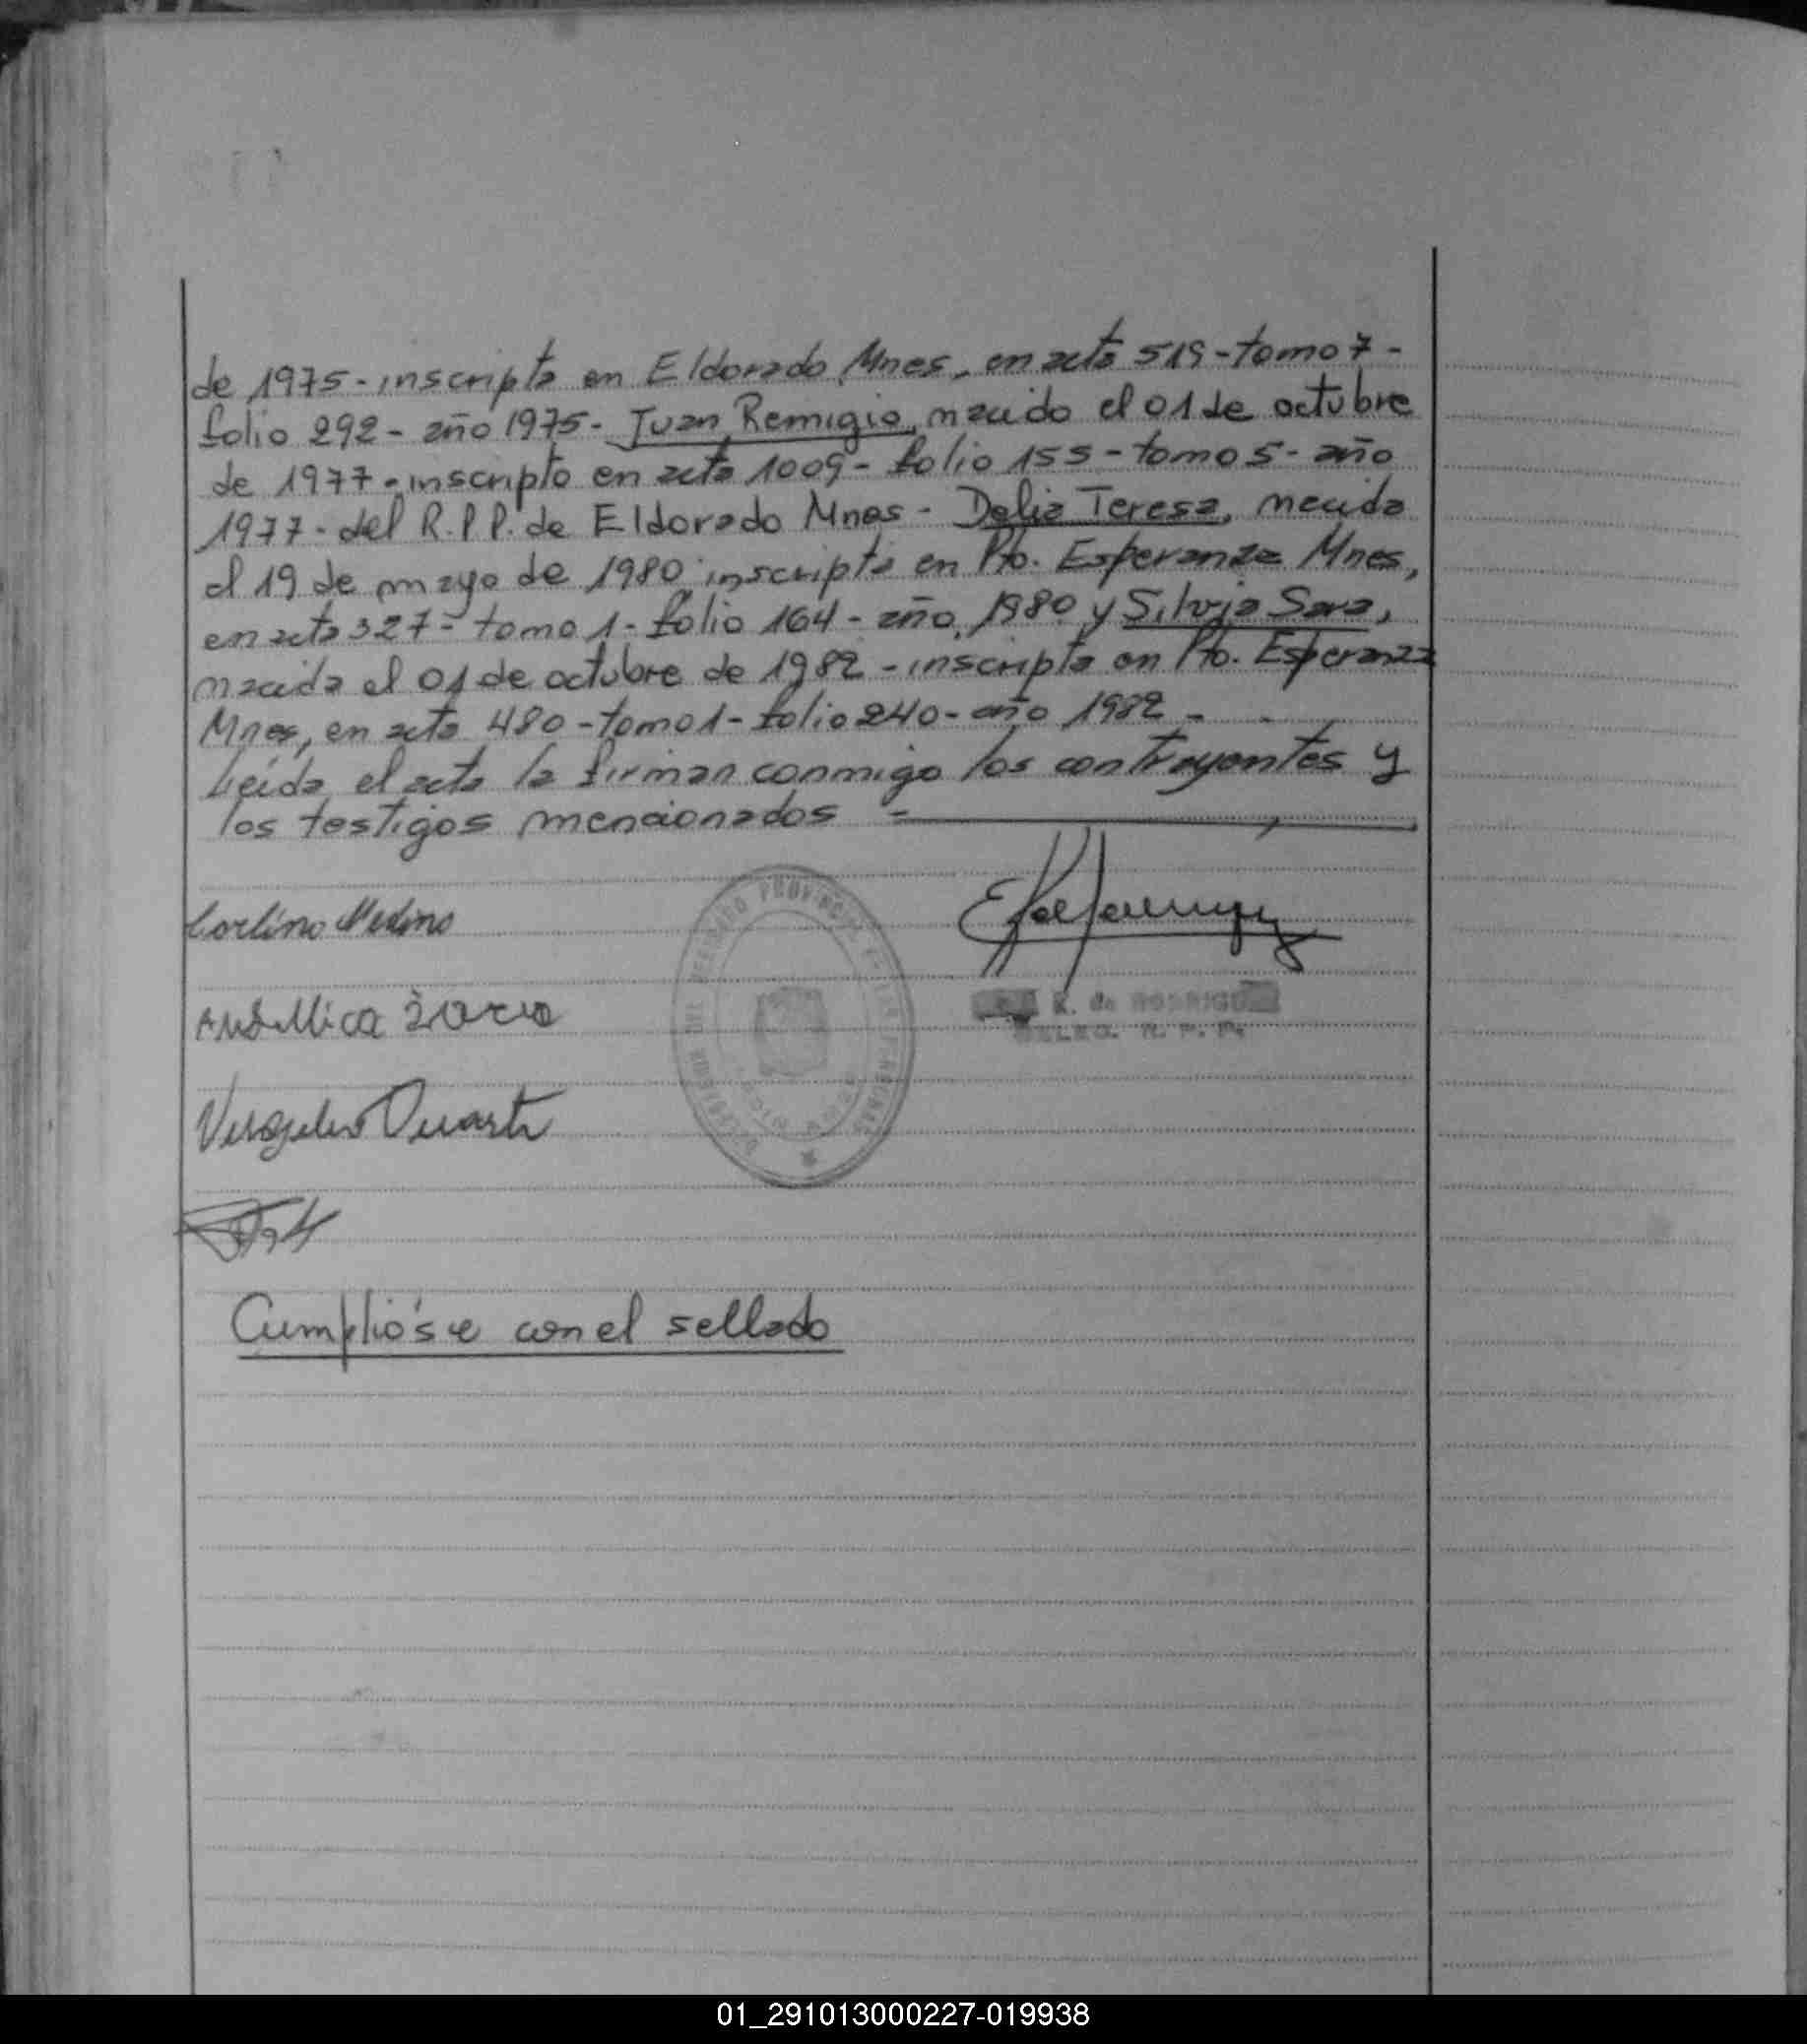 de 1975 - inscripta en Eldorado Mnes, en acta 519 - tomo 7 -
folio 292 - año 1975 - Juan Remigio, nacido el 01 de octubre
de 1977 - inscripto en acta 1009 - folio 155 - tomo 5 - año
1977 - del R.P.P. de Eldorado Mnes - Delia Teresa, nacida
el 19 de mayo de 1980 inscripta en Pto. Esperanza Mnes,
en acta 327 - tomo 1 - folio 164 - año 1980 y Silvia Sara,
nacida el 01 de octubre de 1982 - inscripta en Pto. Esperanza
Mnes, en acta 480 - tomo 1 - folio 240 - año 1982 -
Leída el acta la firman conmigo los contrayentes y
los testigos mencionados -
Medina
Duarte
K. de RODRIGUEZ
DELEG. R. P. P.
Cumplióse con el sellado
01_291013000227-019938